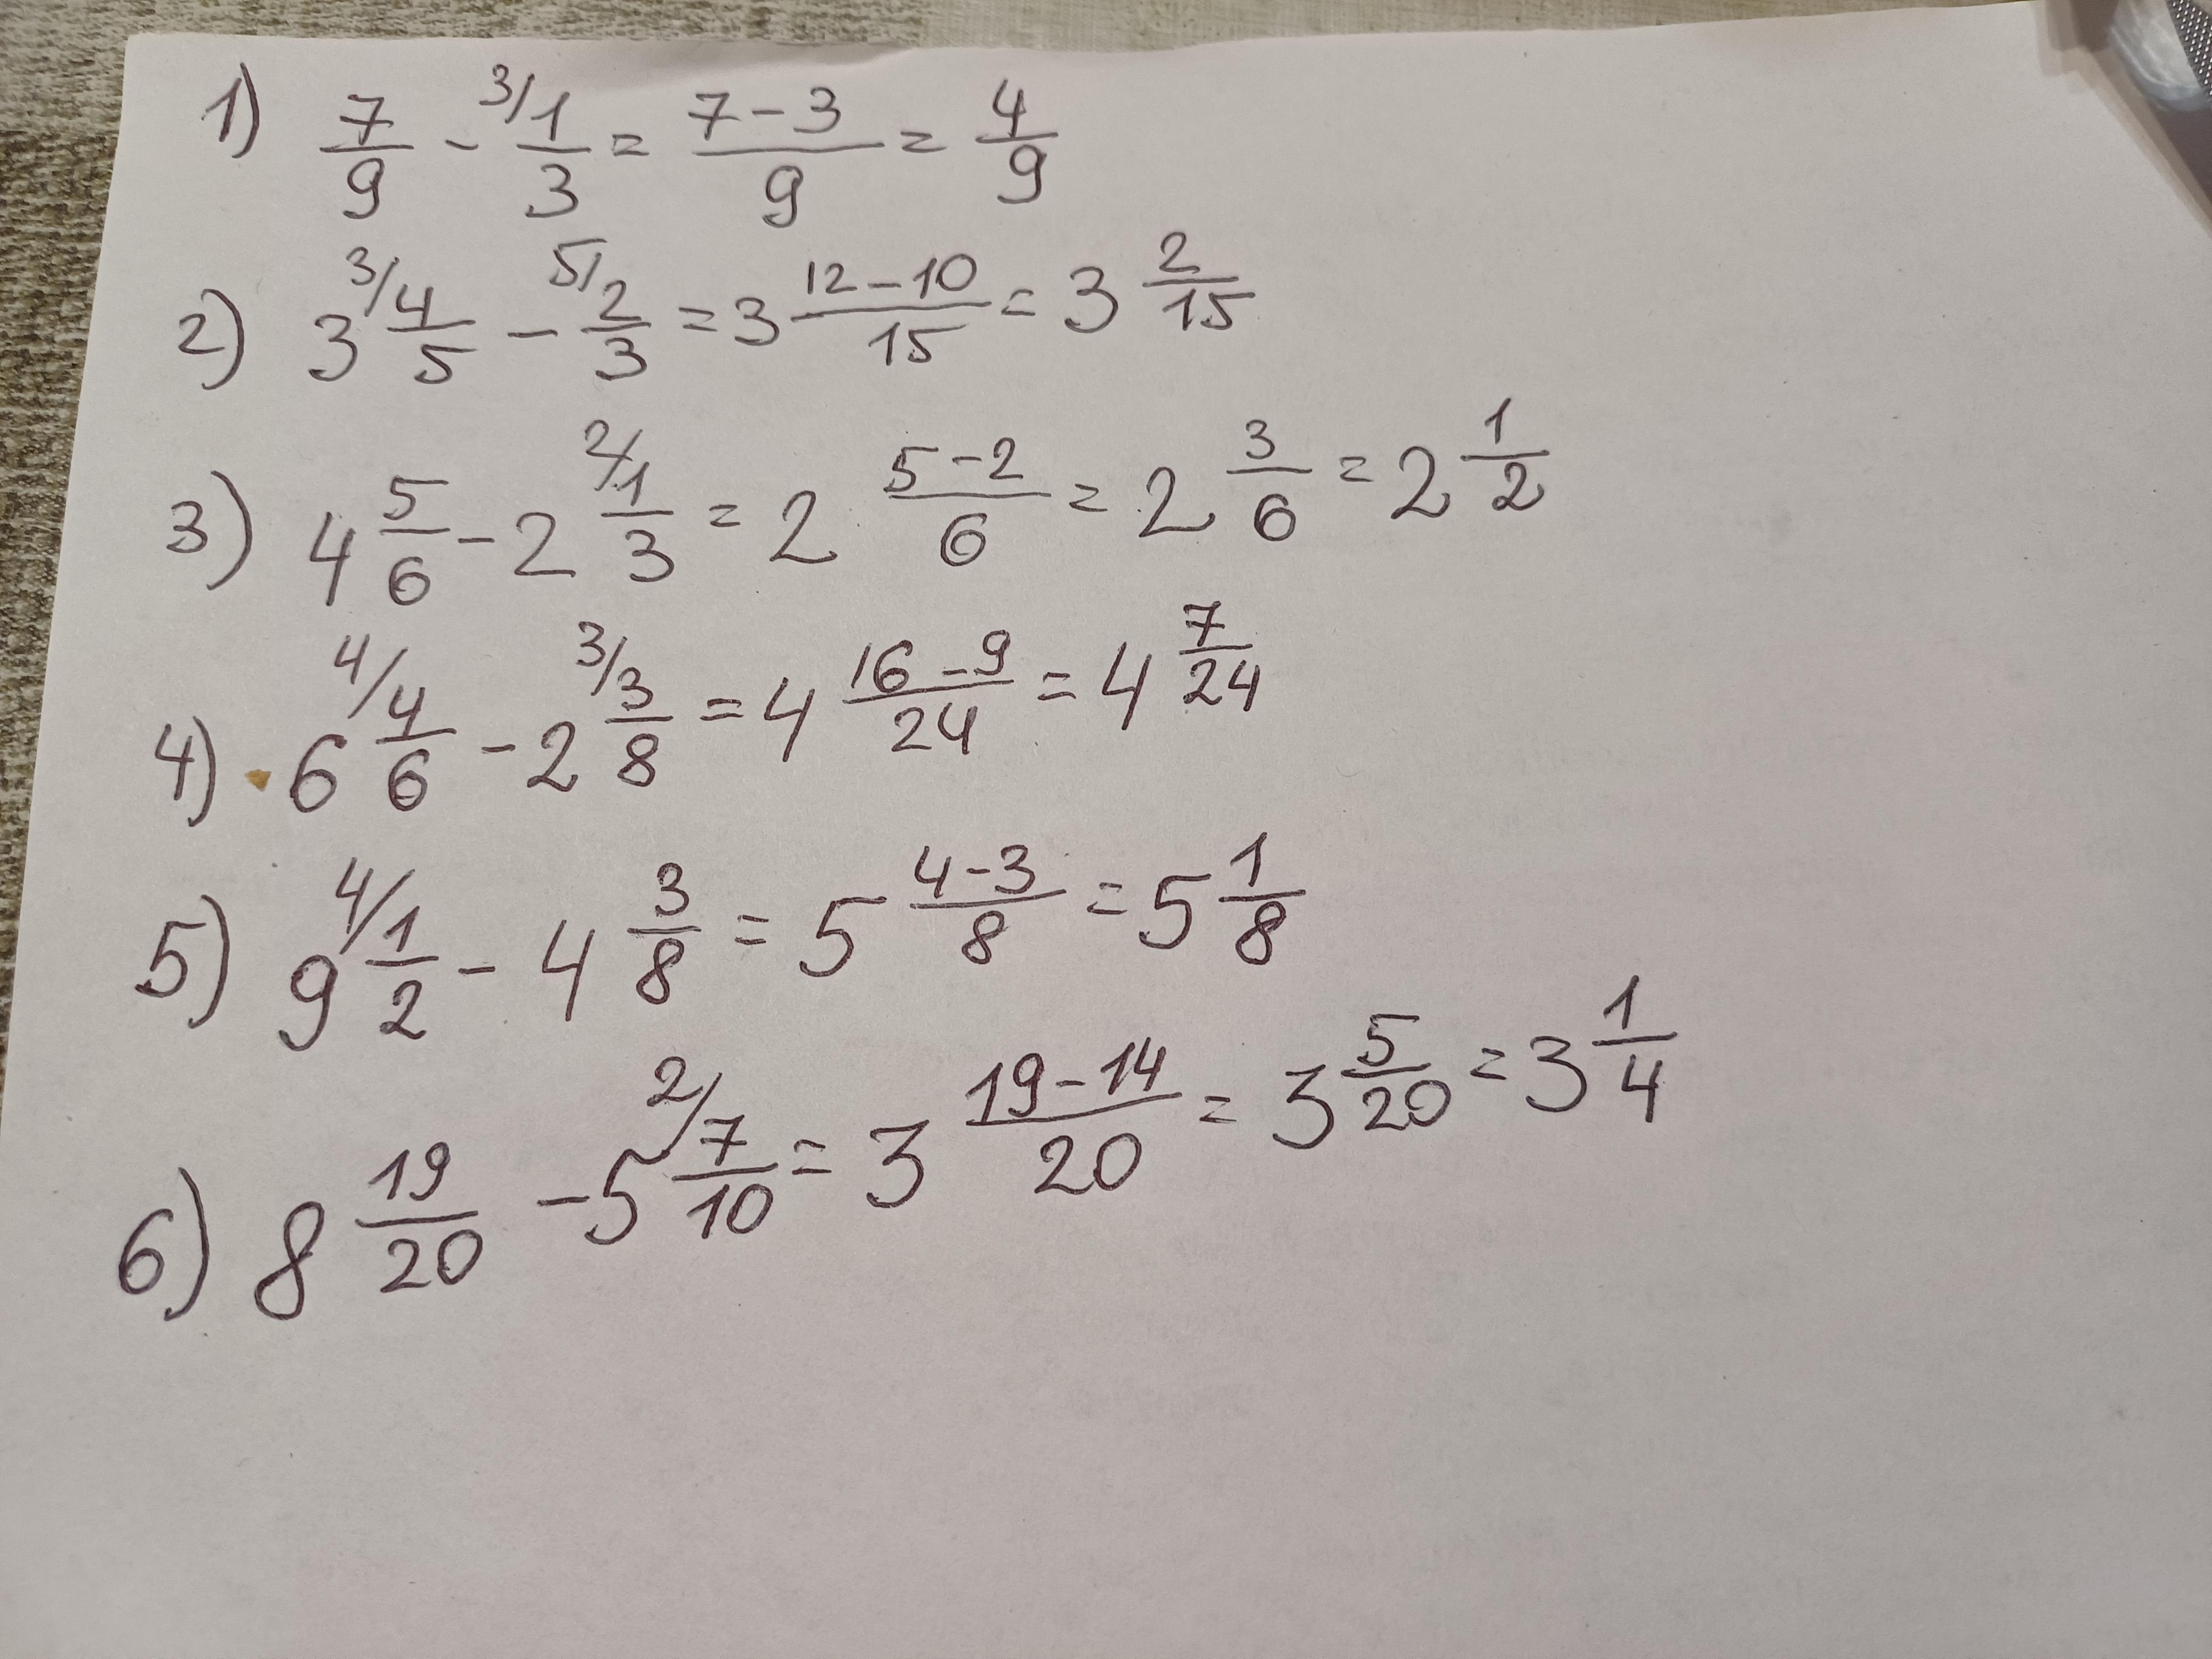 1) 7/9 - ³/1/3 = (7-3)/9 = 4/9
2) 3 ³/4/5 - ⁵/2/3 = 3 (12-10)/15 = 3 2/15
3) 4 5/6 - 2 ²/1/3 = 2 (5-2)/6 = 2 3/6 = 2 1/2
4) 6 ⁴/4/6 - 2 ³/3/8 = 4 (16-9)/24 = 4 7/24
5) 9 ⁴/1/2 - 4 3/8 = 5 (4-3)/8 = 5 1/8
6) 8 19/20 - 5 ²/7/10 = 3 (19-14)/20 = 3 5/20 = 3 1/4